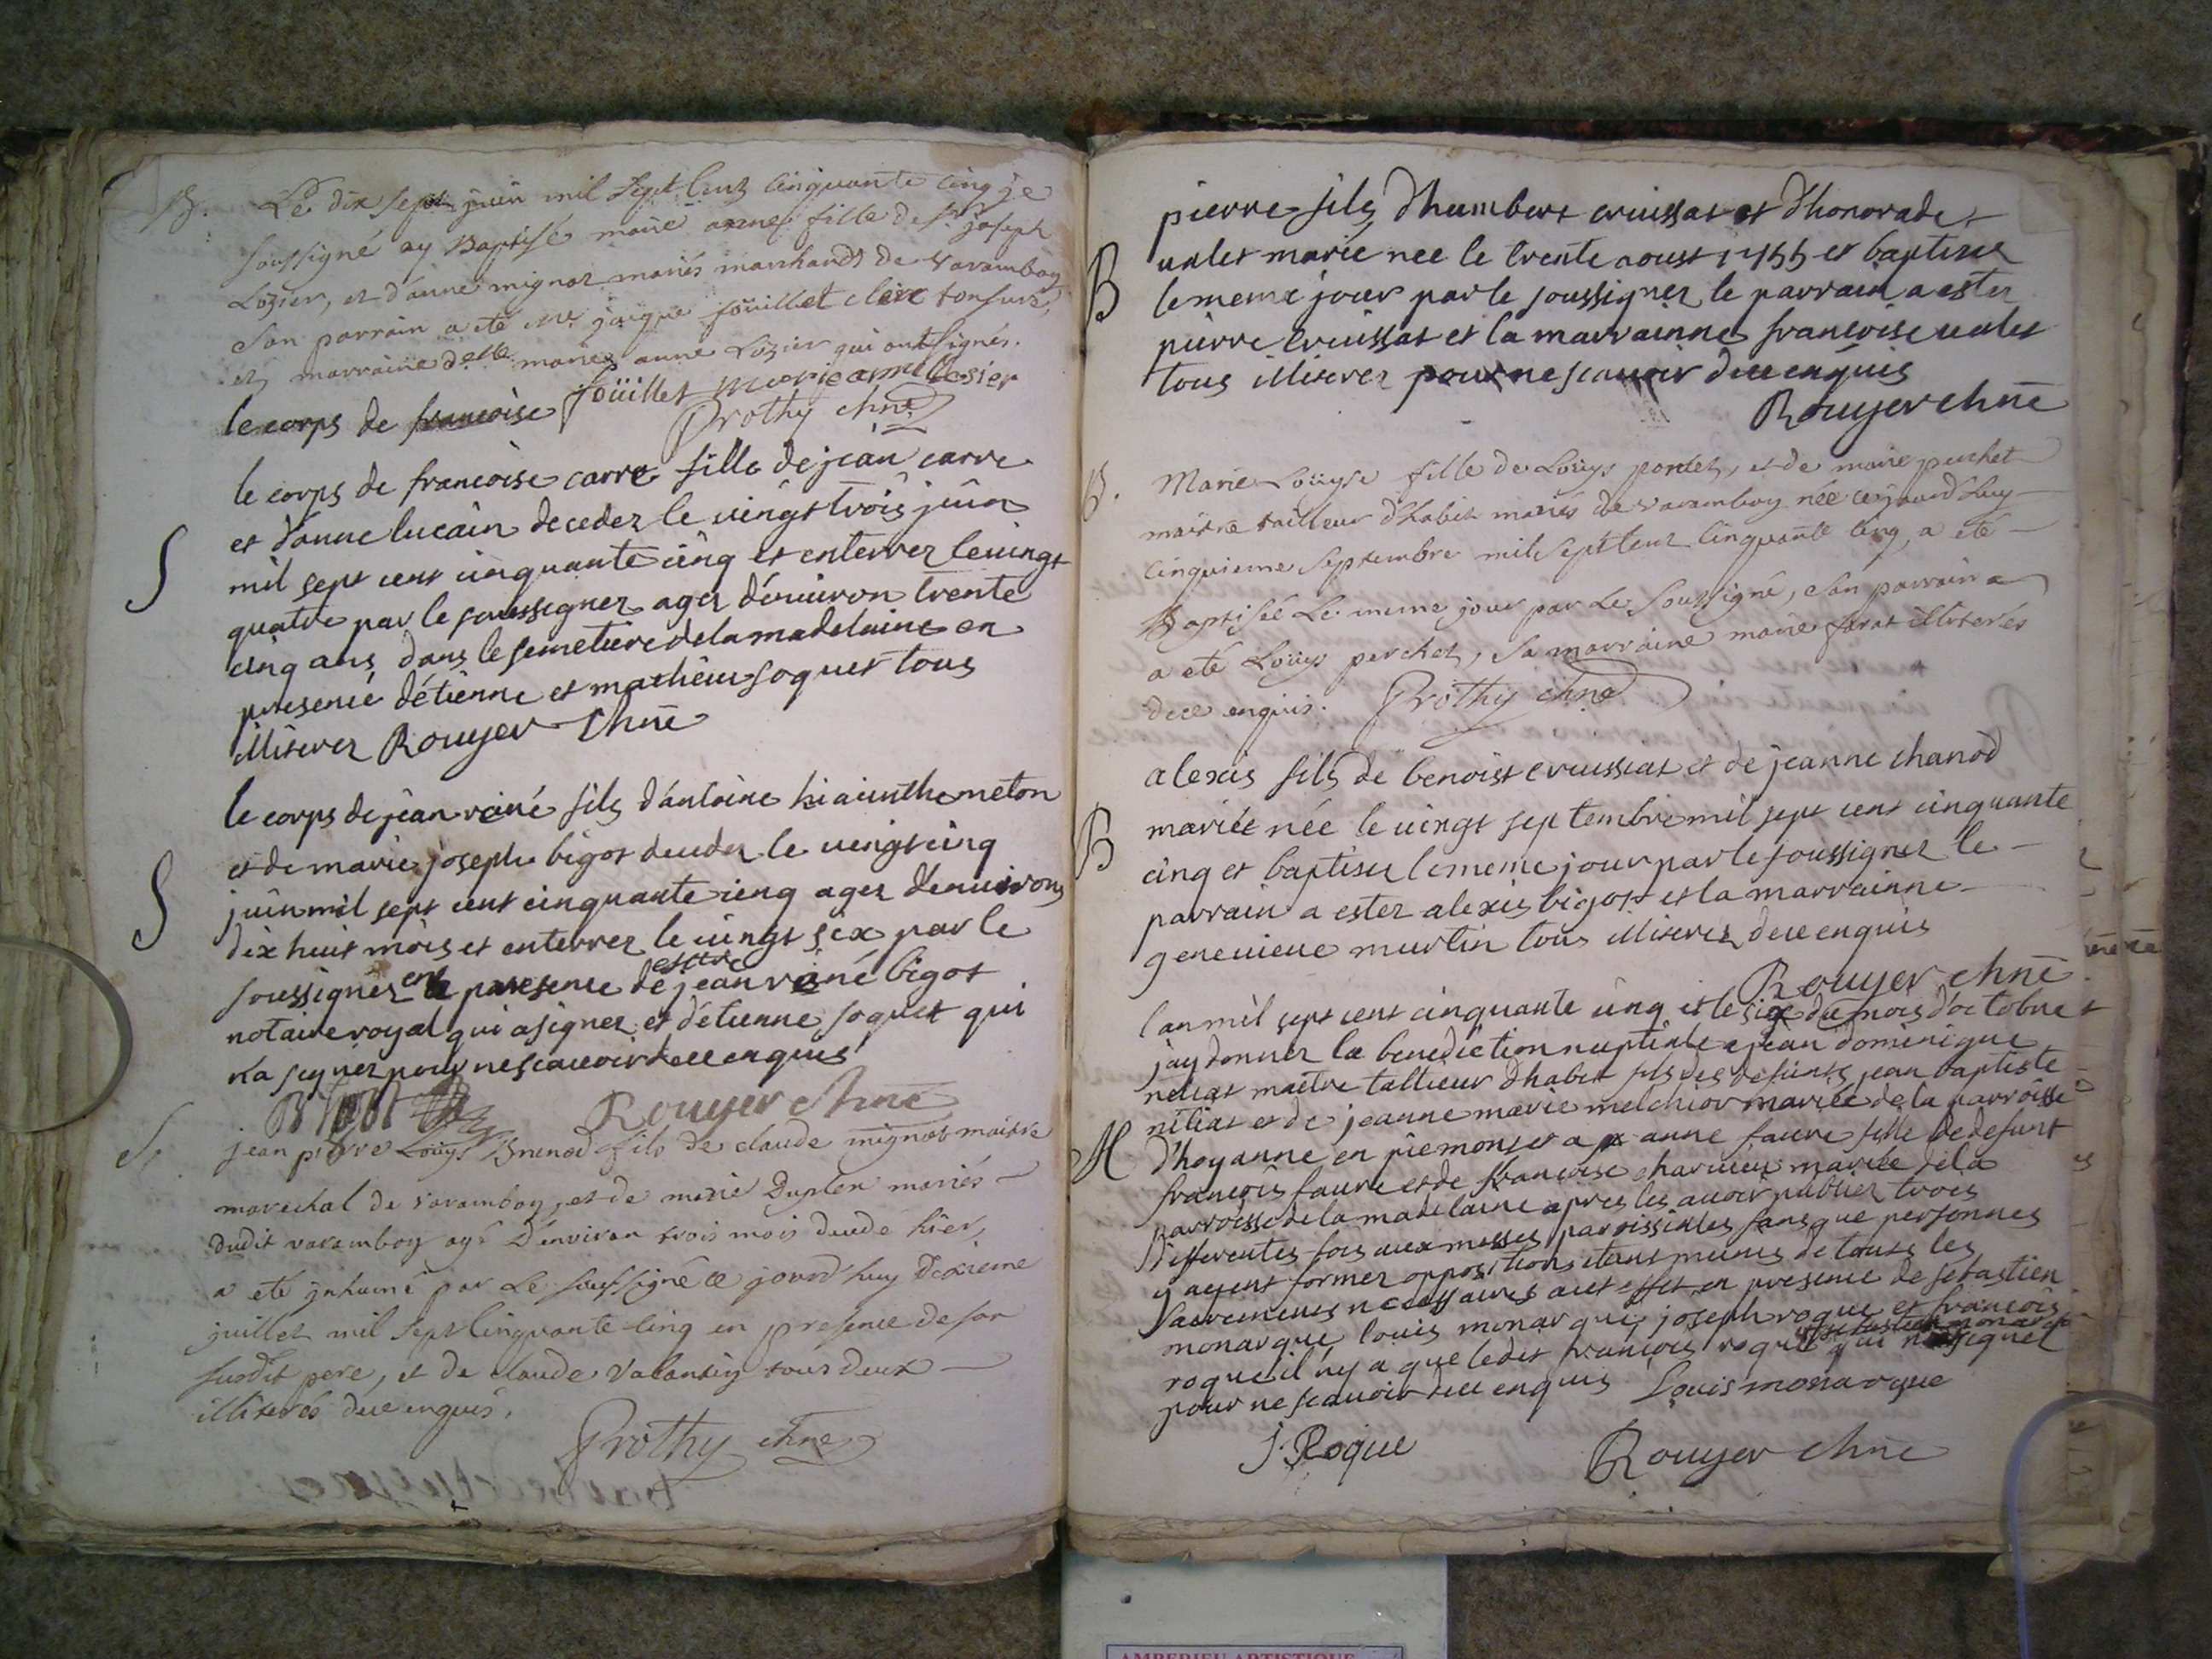 B. Le dix sept juin mil Sept Cent Cinquante Cinq je
Soussigné ay Baptisé marie anne fille de Sr joseph
Lozier, et d'anne mignot mariés marchands de varambon
Son parrain a eté Mre jaique foüillet clerc tonsuré,
et marraine delle marie anne Lozier qui ont signés.
foüillet marie anne Losier
le corps de francoise Prothy chne
le corps de francoise carre fille de jean carre
et d'anne lucain deceder le uingt trois juin
S mil sept cent cinquante cinq et enterrer le uingt
quatre par le soussigner ager d'enuiron trente
cinq ans dans le semetiere de la madelaine en
presence d'etienne et mathieu soquet tous
illiterez Rouyer chne
le corps de jean rené fils d'antoine hiacinthe meton
et de marie joseph bigot deceder le uingt cinq
S juin mil sept cent cinquante cinq ager d'enuirons
dix huit mois et enterrer le uingt six par le
soussigner en presence de jean rené bigot
notaire royal qui a signer et d'etienne soquet qui
n'a signer pour ne scauoir de ce enquis
Bigot Rouyer chne
S. jean pierre Loüys Brunod fils de claude mignot maistre
marechal de varambon, et de marie Duplen mariés
dudit varambon agé D'environ trois mois decedé hier,
a eté inhumé par Le soussigné ce jourd'huy Dixieme
juillet mil Sept Cinquante Cinq en presence de son
susdit pere, et de claude Valantin tous deux
illiterés de ce enquis.
Prothy chne
pierre fils d'humbert cruissat et d'honorade
ualet marie nee le trente aoust 1755 et baptiser
B le meme jour par le soussigner le parrain a ester
pierre cruissat et la marrainne francoise ualet
tous illiterez pour ne scauoir de ce enquis
Rouyer chne
B. Marie Loüyse fille de Loüys pontet, et de marie perchet
maitre tailleur d'habit mariés de varambon née cejourd'huy
cinquieme Septembre mil Sept Cent Cinquante Cinq, a eté
Baptisée Le meme jour par Le Soussigné, Son parrain a
a eté Loüys perchet, Sa marraine marie farat illiterés
de ce enquis. Prothy chne
alexis fils de benoist cruissiat et de jeanne chanod
mariée née le uingt septembre mil sept cent cinquante
B cinq et baptiser le meme jour par le soussigner le
parrain a ester alexis bigot et la marrainne
geneuieue murtin tous illiterez de ce enquis
Rouyer chne
l'an mil sept cent cinquante cinq et le six du mois d'octobre
jay donner la benediction nuptiale a jean dominique
neliat maitre tallieur d'habit fils des defunts jean baptiste
niliat et de jeanne marie melchior mariée de la parroisse
M d'hoyanne en piemont et a anne faure fille de defunt
francois faure et de francoise charuieu mariée de la
parroisse de la madelaine apres les auoir publier trois
differentes fois aux messes paroissialles sans que personnes
y ayent former opposition etant munis de touts les
sacrements necessaires a cet effet en presence de sebastien
monarque louis monarque joseph roque et francois
roque il n'y a que ledit francois roque et sebastien monarque qui n'a signer
pour ne scauoir de ce enquis Louis monarque
J. Roque Rouyer chne
AMBERIEU ARTISTIQUE